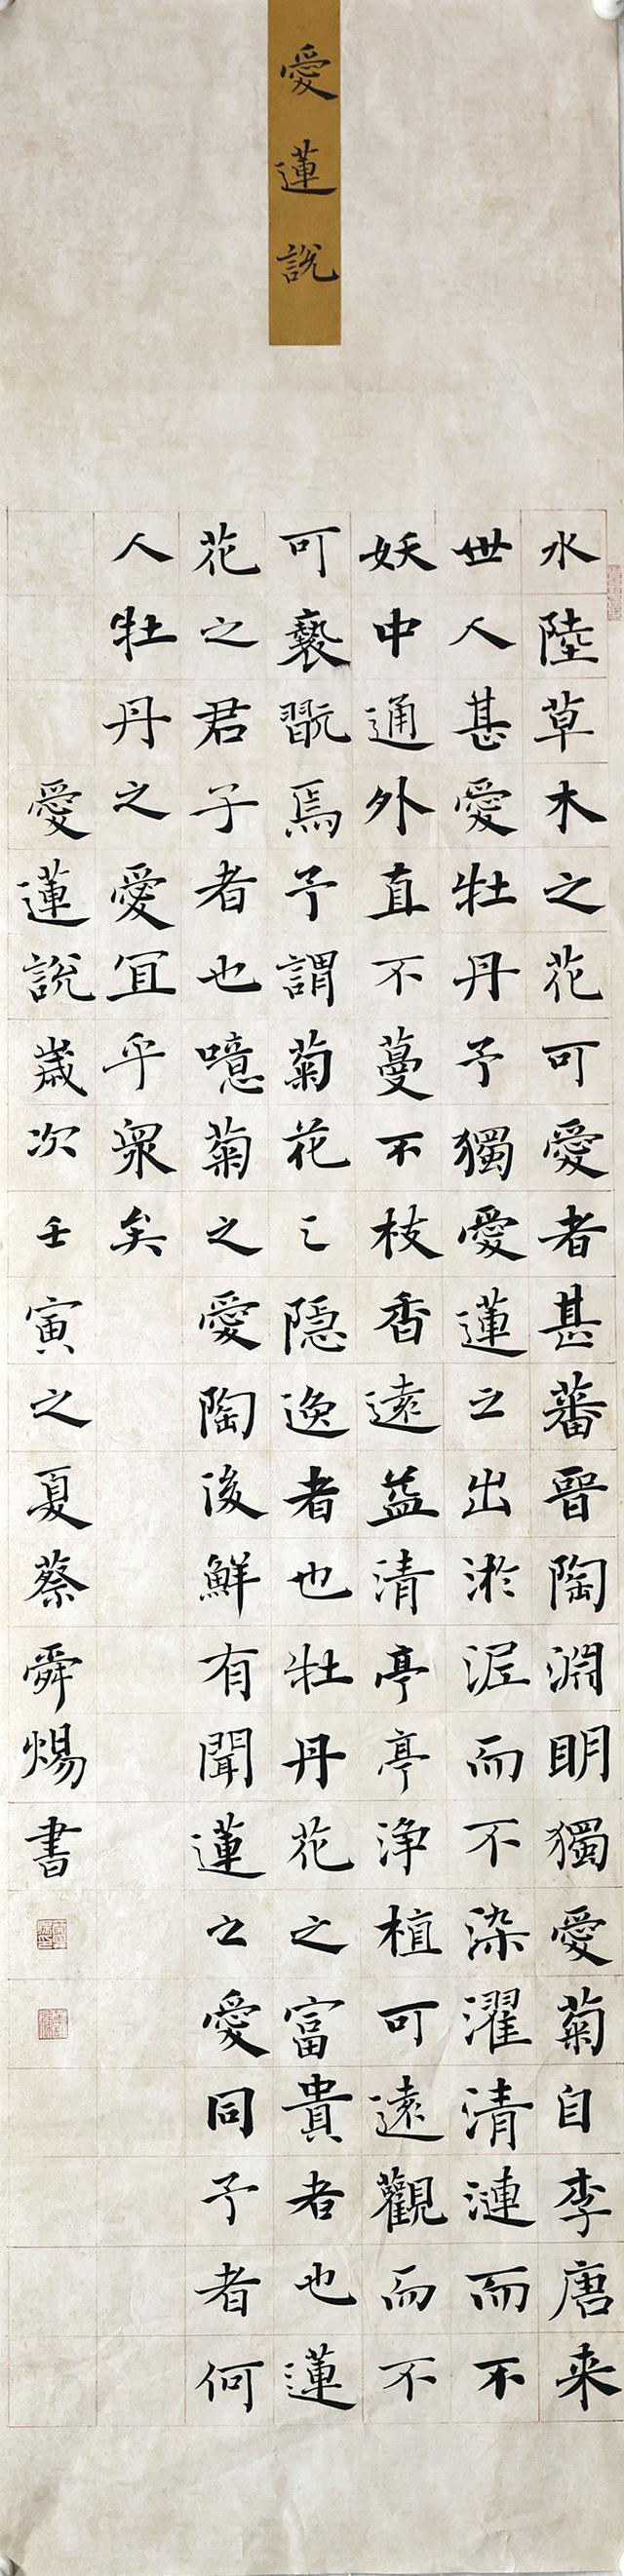 愛蓮說
水陸草木之花可愛者甚蕃晉陶淵明獨愛菊自李唐来
世人甚愛牡丹予獨愛蓮之出淤泥而不染濯清漣而不
妖中通外直不蔓不枝香遠益清亭亭淨植可遠觀而不
可褻翫焉予謂菊花之隱逸者也牡丹花之富貴者也蓮
花之君子者也噫菊之愛陶後鮮有聞蓮之愛同予者何
人牡丹之愛宜乎衆矣
愛蓮說歲次壬寅之夏蔡舜惕書